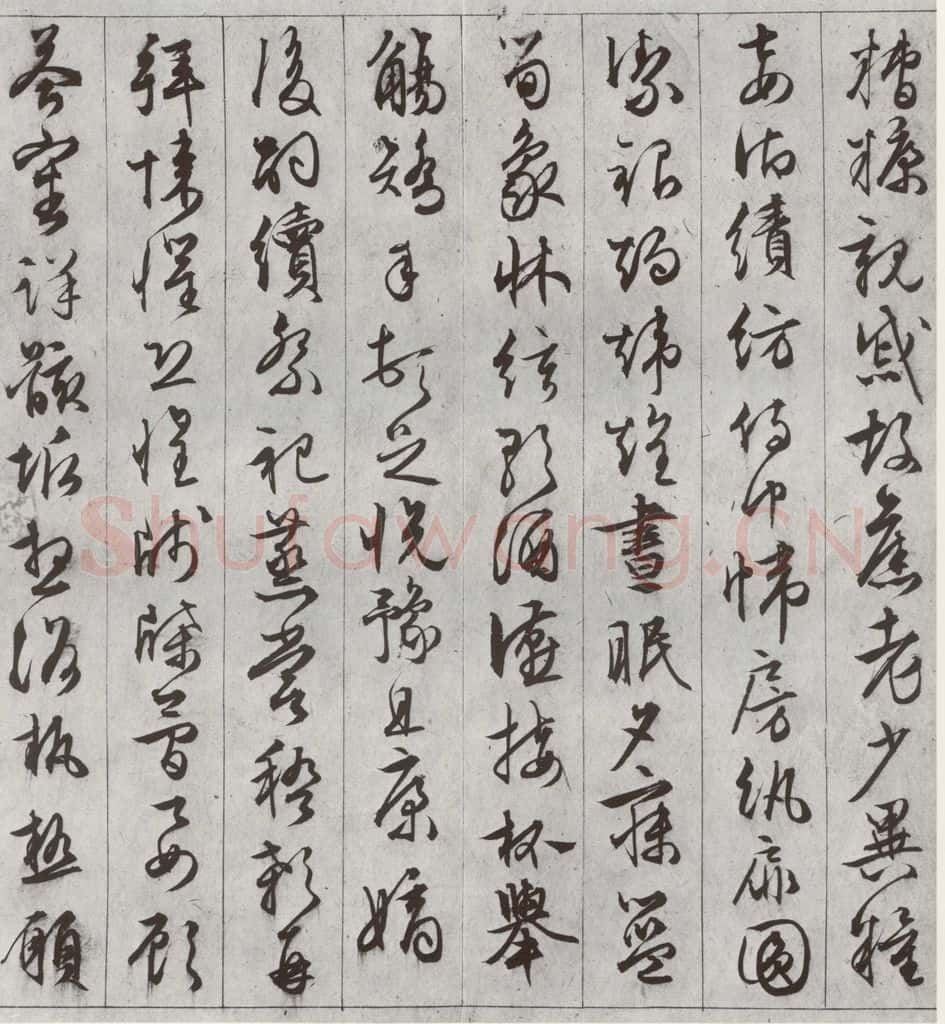 糟糠親戚故舊老少異糧
妾御績紡侍巾帷房紈扇圓
潔銀燭煒煌晝眠夕寐藍
筍象牀絃歌酒讌接杯舉
觴矯手頓足悅豫且康嫡
後嗣續祭祀蒸嘗稽顙再
拜悚懼恐惶牋牒簡要顧
答審詳骸垢想浴執熱願
Shufawang.CN